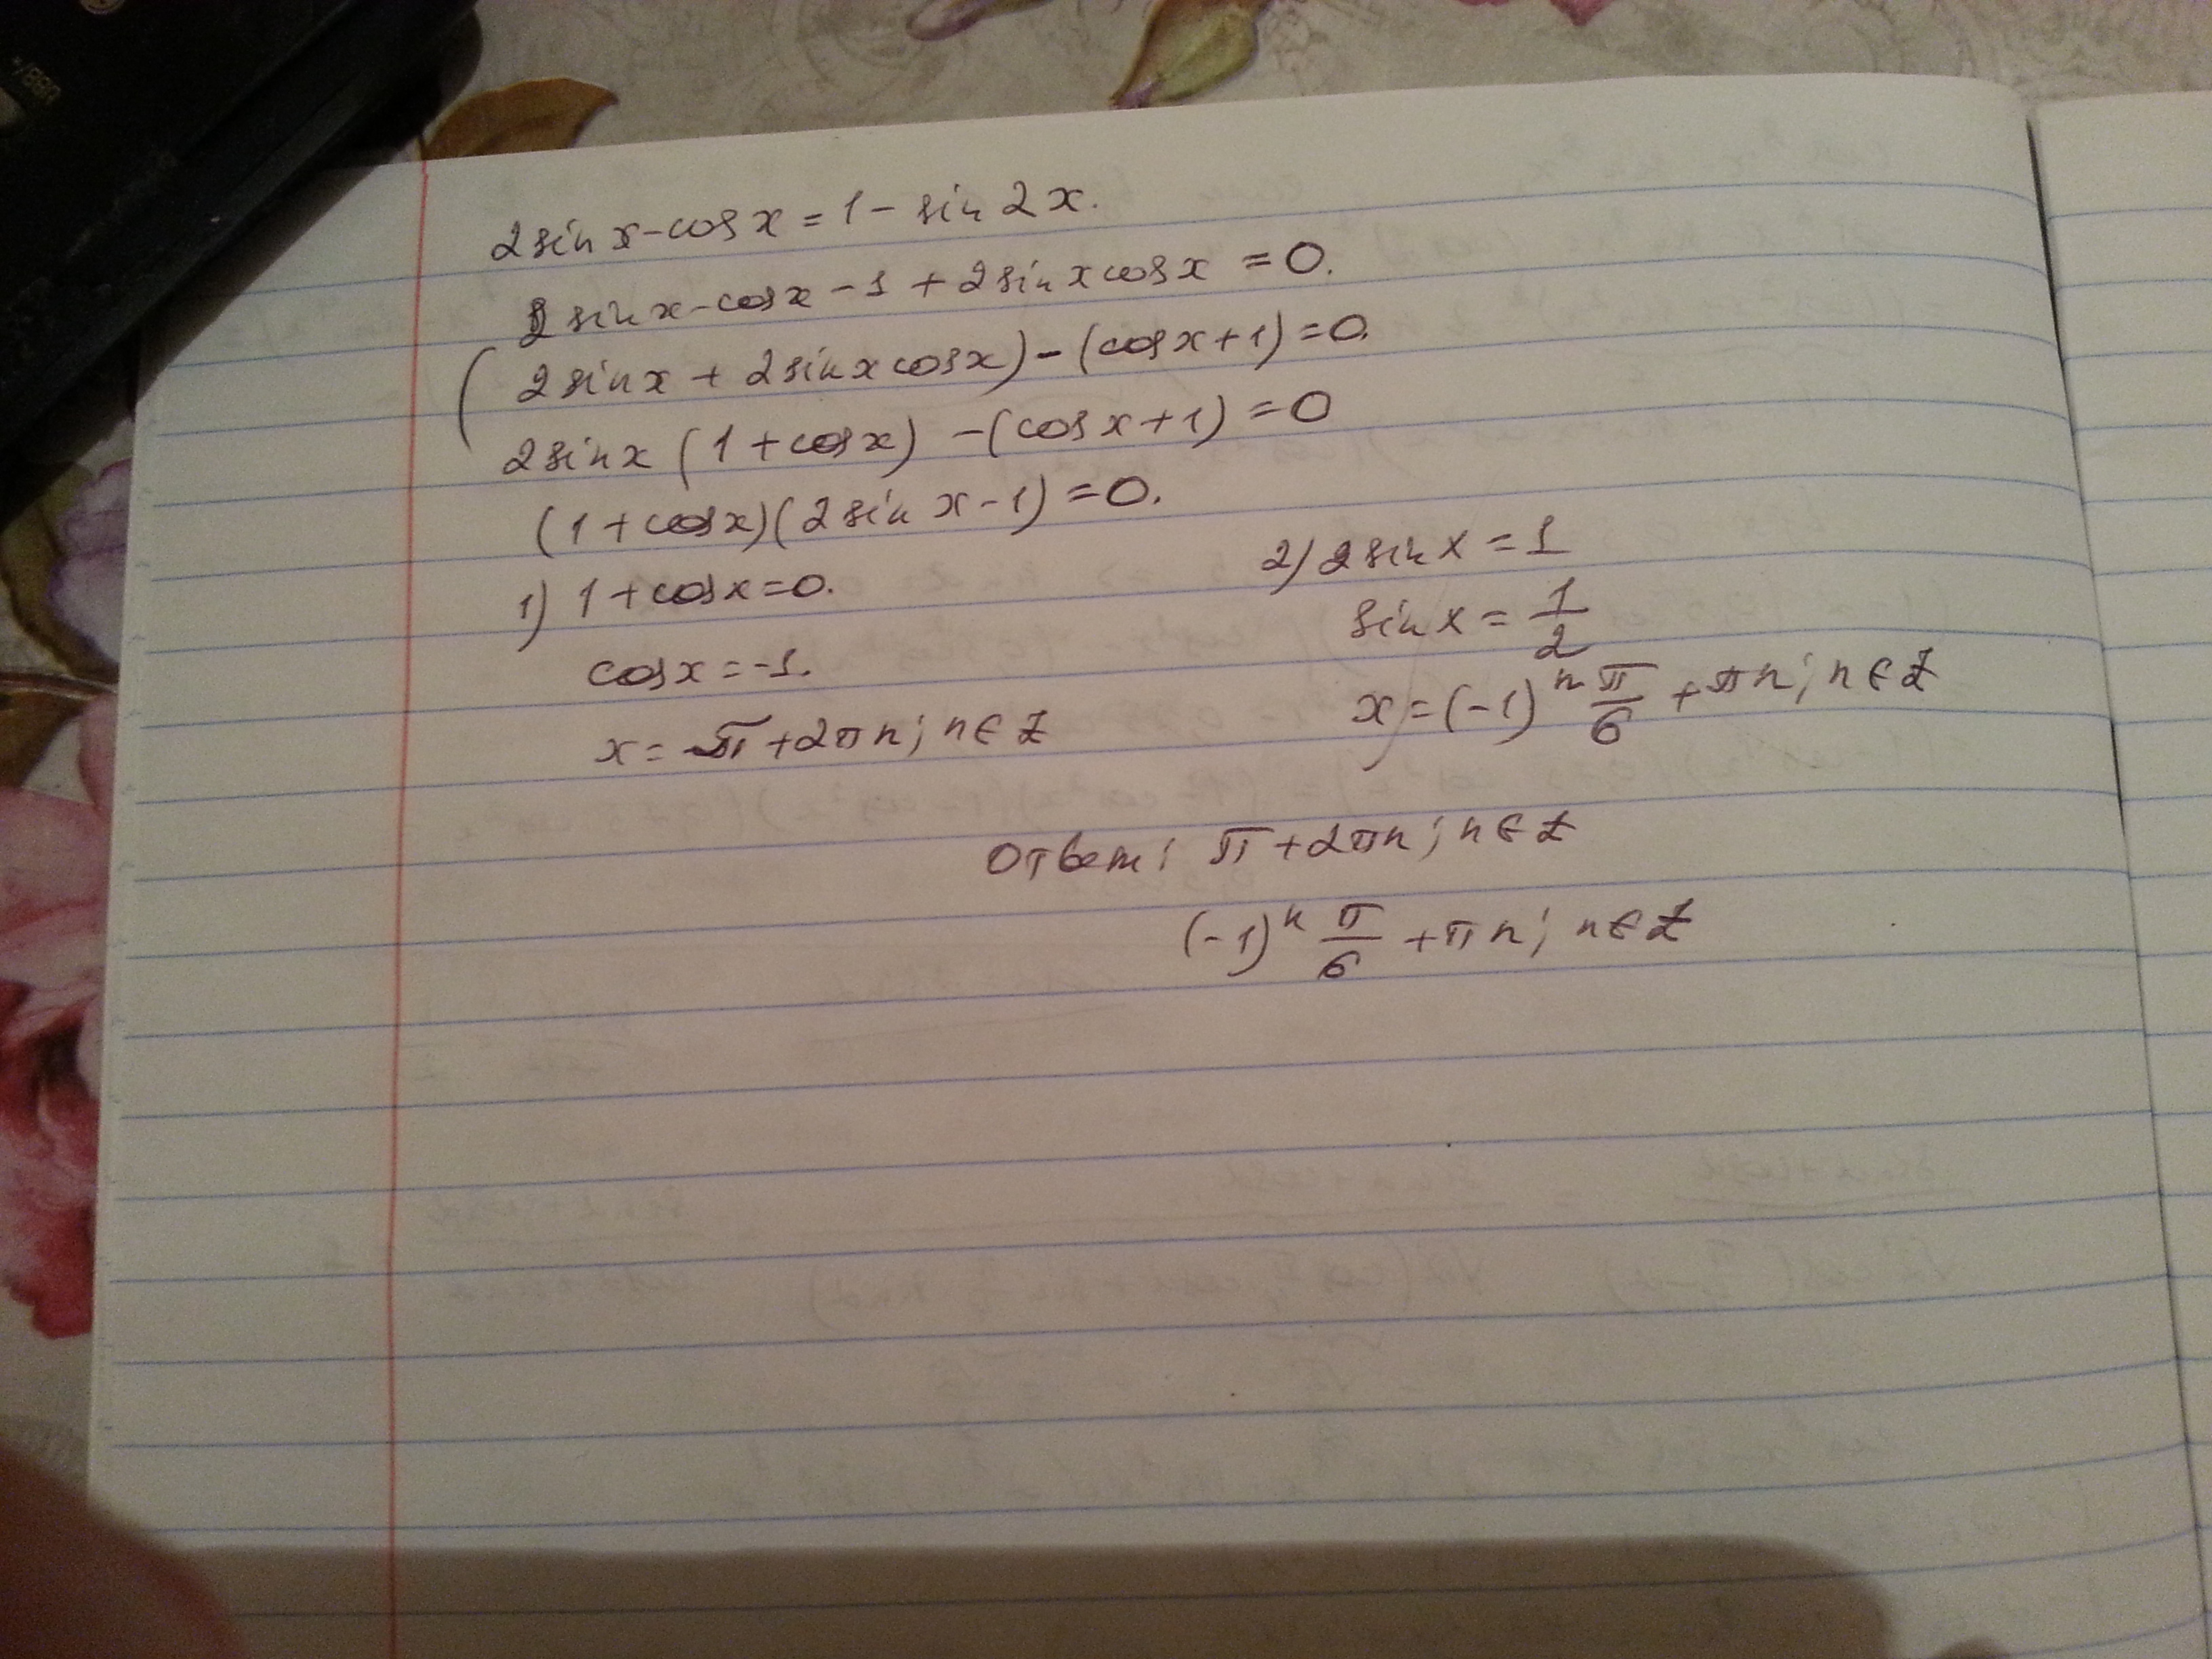 2sin x - cos x = 1 - sin 2x.
2 sin x - cos x - 1 + 2 sin x cos x = 0.
( 2 sin x + 2 sin x cos x) - (cos x + 1) = 0.
2 sin x (1 + cos x) - (cos x + 1) = 0
(1 + cos x)(2 sin x - 1) = 0.
1) 1 + cos x = 0.
cos x = -1.
x = π + 2πn; n ∈ Z
2) 2 sin x = 1
sin x = 1/2
x = (-1)^n π/6 + πn; n ∈ Z
Ответ: π + 2πn; n ∈ Z
(-1)^n π/6 + πn; n ∈ Z